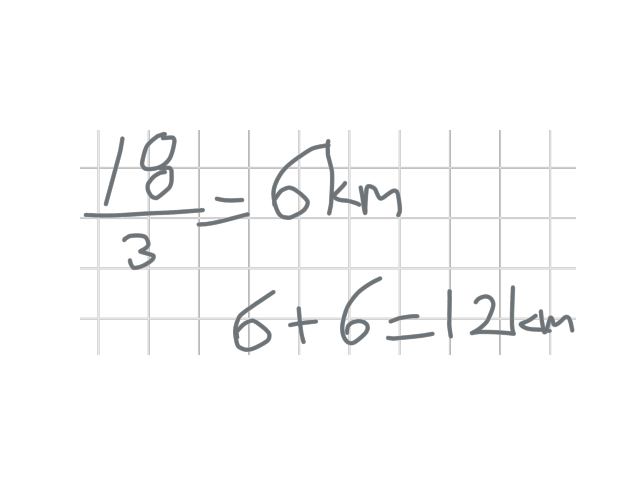 18/3 = 6km
6 + 6 = 12km